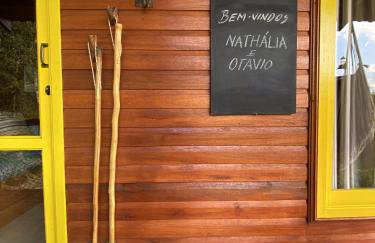 BEM-VINDOS
NATHÁLIA
E
OTÁVIO